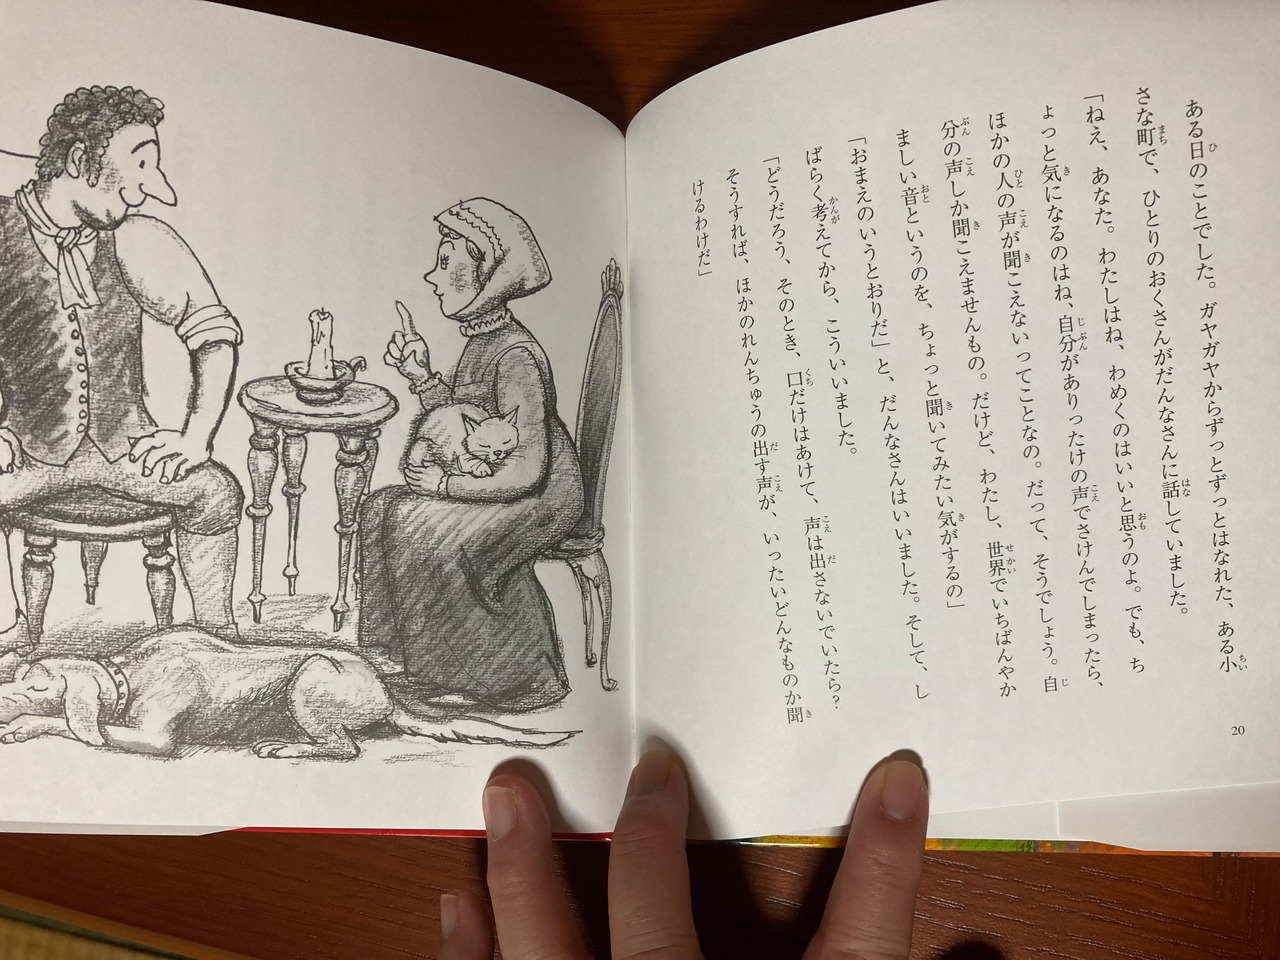 ある日のことでした。ガヤガヤからずっとずっとはなれた、ある小
さな町で、ひとりのおくさんがだんなさんに話していました。
「ねえ、あなた。わたしはね、わめくのはいいと思うのよ。でも、ち
ょっと気になるのはね、自分がありったけの声でさけんでしまったら、
ほかの人の声が聞こえないってことなの。だって、そうでしょう。自
分の声しか聞こえませんもの。だけど、わたし、世界でいちばんやか
ましい音というのを、ちょっと聞いてみたい気がするの」
「おまえのいうとおりだ」と、だんなさんはいいました。そして、し
ばらく考えてから、こういいました。
「どうだろう、そのとき、口だけはあけて、声は出さないでいたら？
そうすれば、ほかのれんちゅうの出す声が、いったいどんなものか聞
けるわけだ」
20